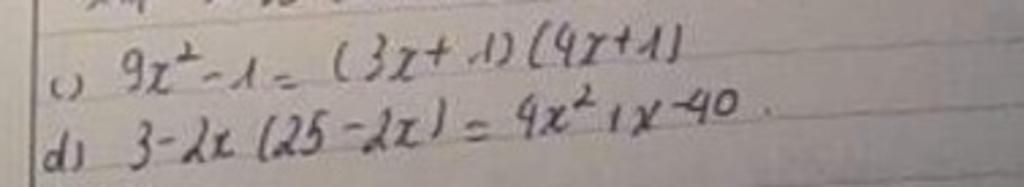 c) 9x² - 1 = (3x + 1)(4x + 1)
d) 3 - 2x (25 - 2x) = 4x² + x - 40.